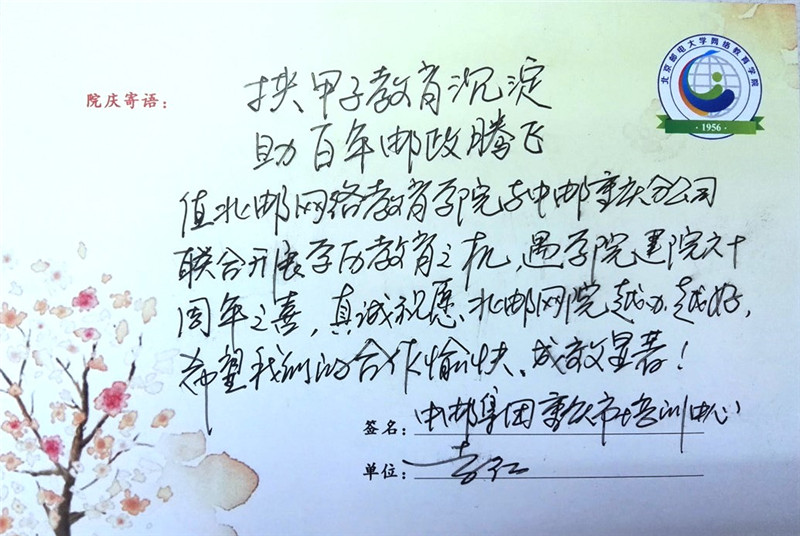 北京邮电大学网络教育学院
1956
院庆寄语：
挟甲子教育沉淀
助百年邮政腾飞
值北邮网络教育学院与中邮重庆分公司
联合开展学历教育之机，遇学院建院六十
周年之喜，真诚祝愿北邮网院越办越好，
希望我们的合作愉快、成效显著！
签名：中邮集团重庆市培训中心
单位：